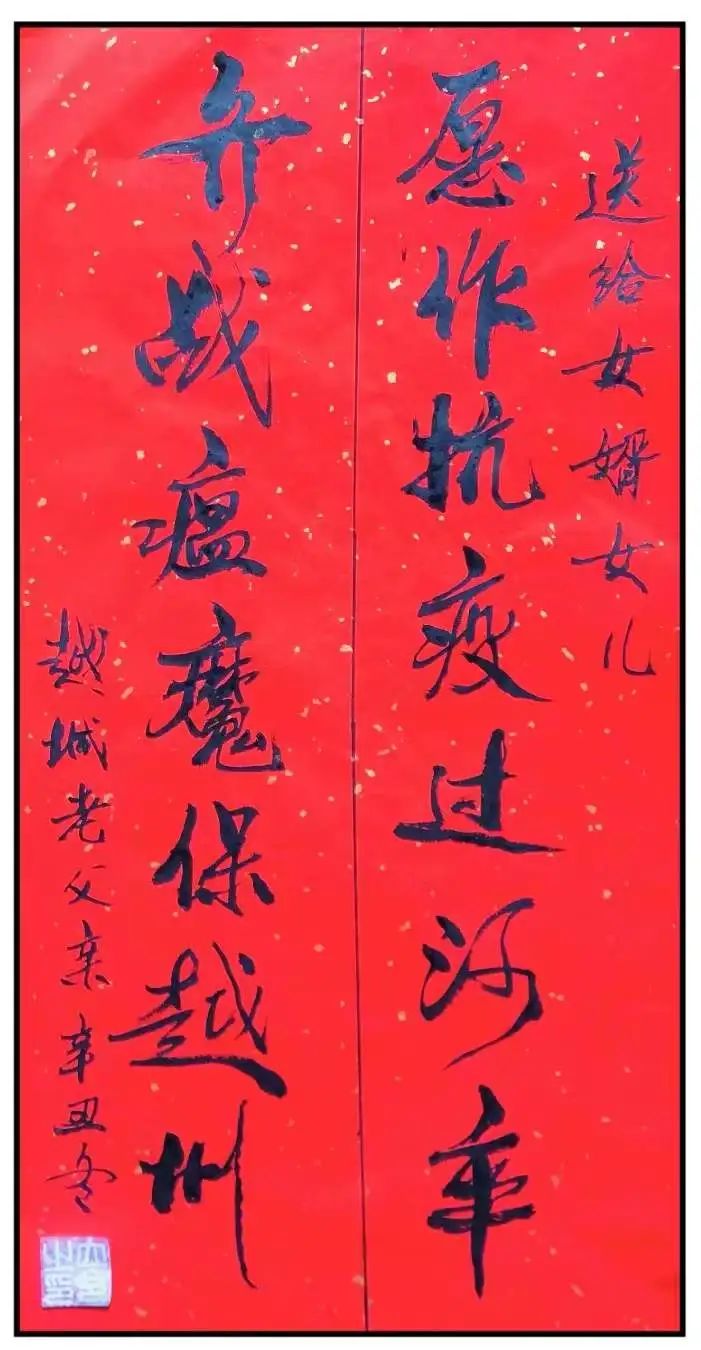 送给女婿女儿
愿作抗疫过河卒
齐战瘟魔保越州
越城老父亲辛丑冬